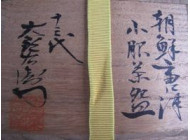 朝鮮唐津
小服茶盌
十三代
太郎右衛門